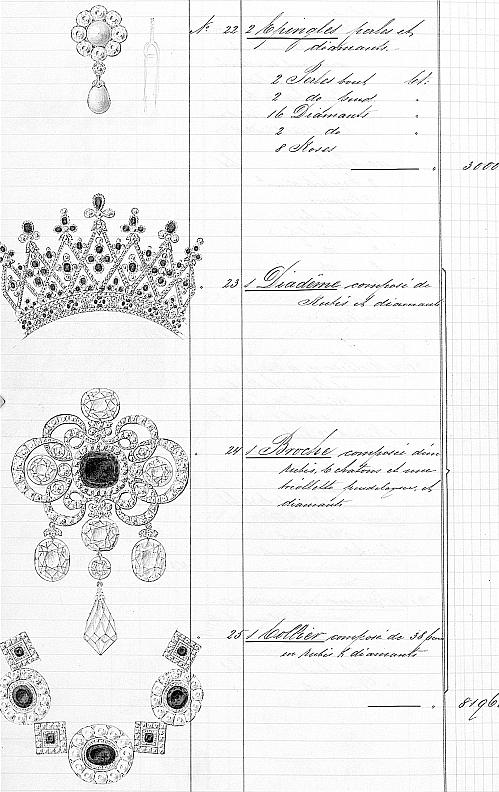 N° 22 2 Epingles perles et
diamants.
2 Perles bout Ct:
2 do "
16 Diamants "
2 do "
8 Roses
" 3000
23 1 Diadème composé de
Rubis & diamants
24 1 Broche composée d'un
rubis, 6 chatons et une
briollette pendeloque, et
diamants
25 1 Collier composé de 38
en rubis & diamants
" 8196